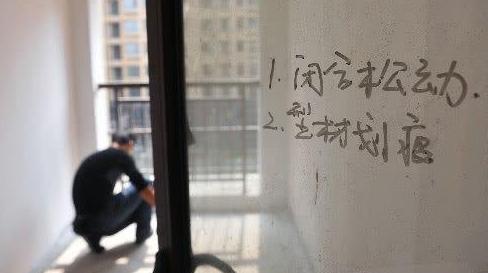 1. 闭合松动.
2. 型材划痕